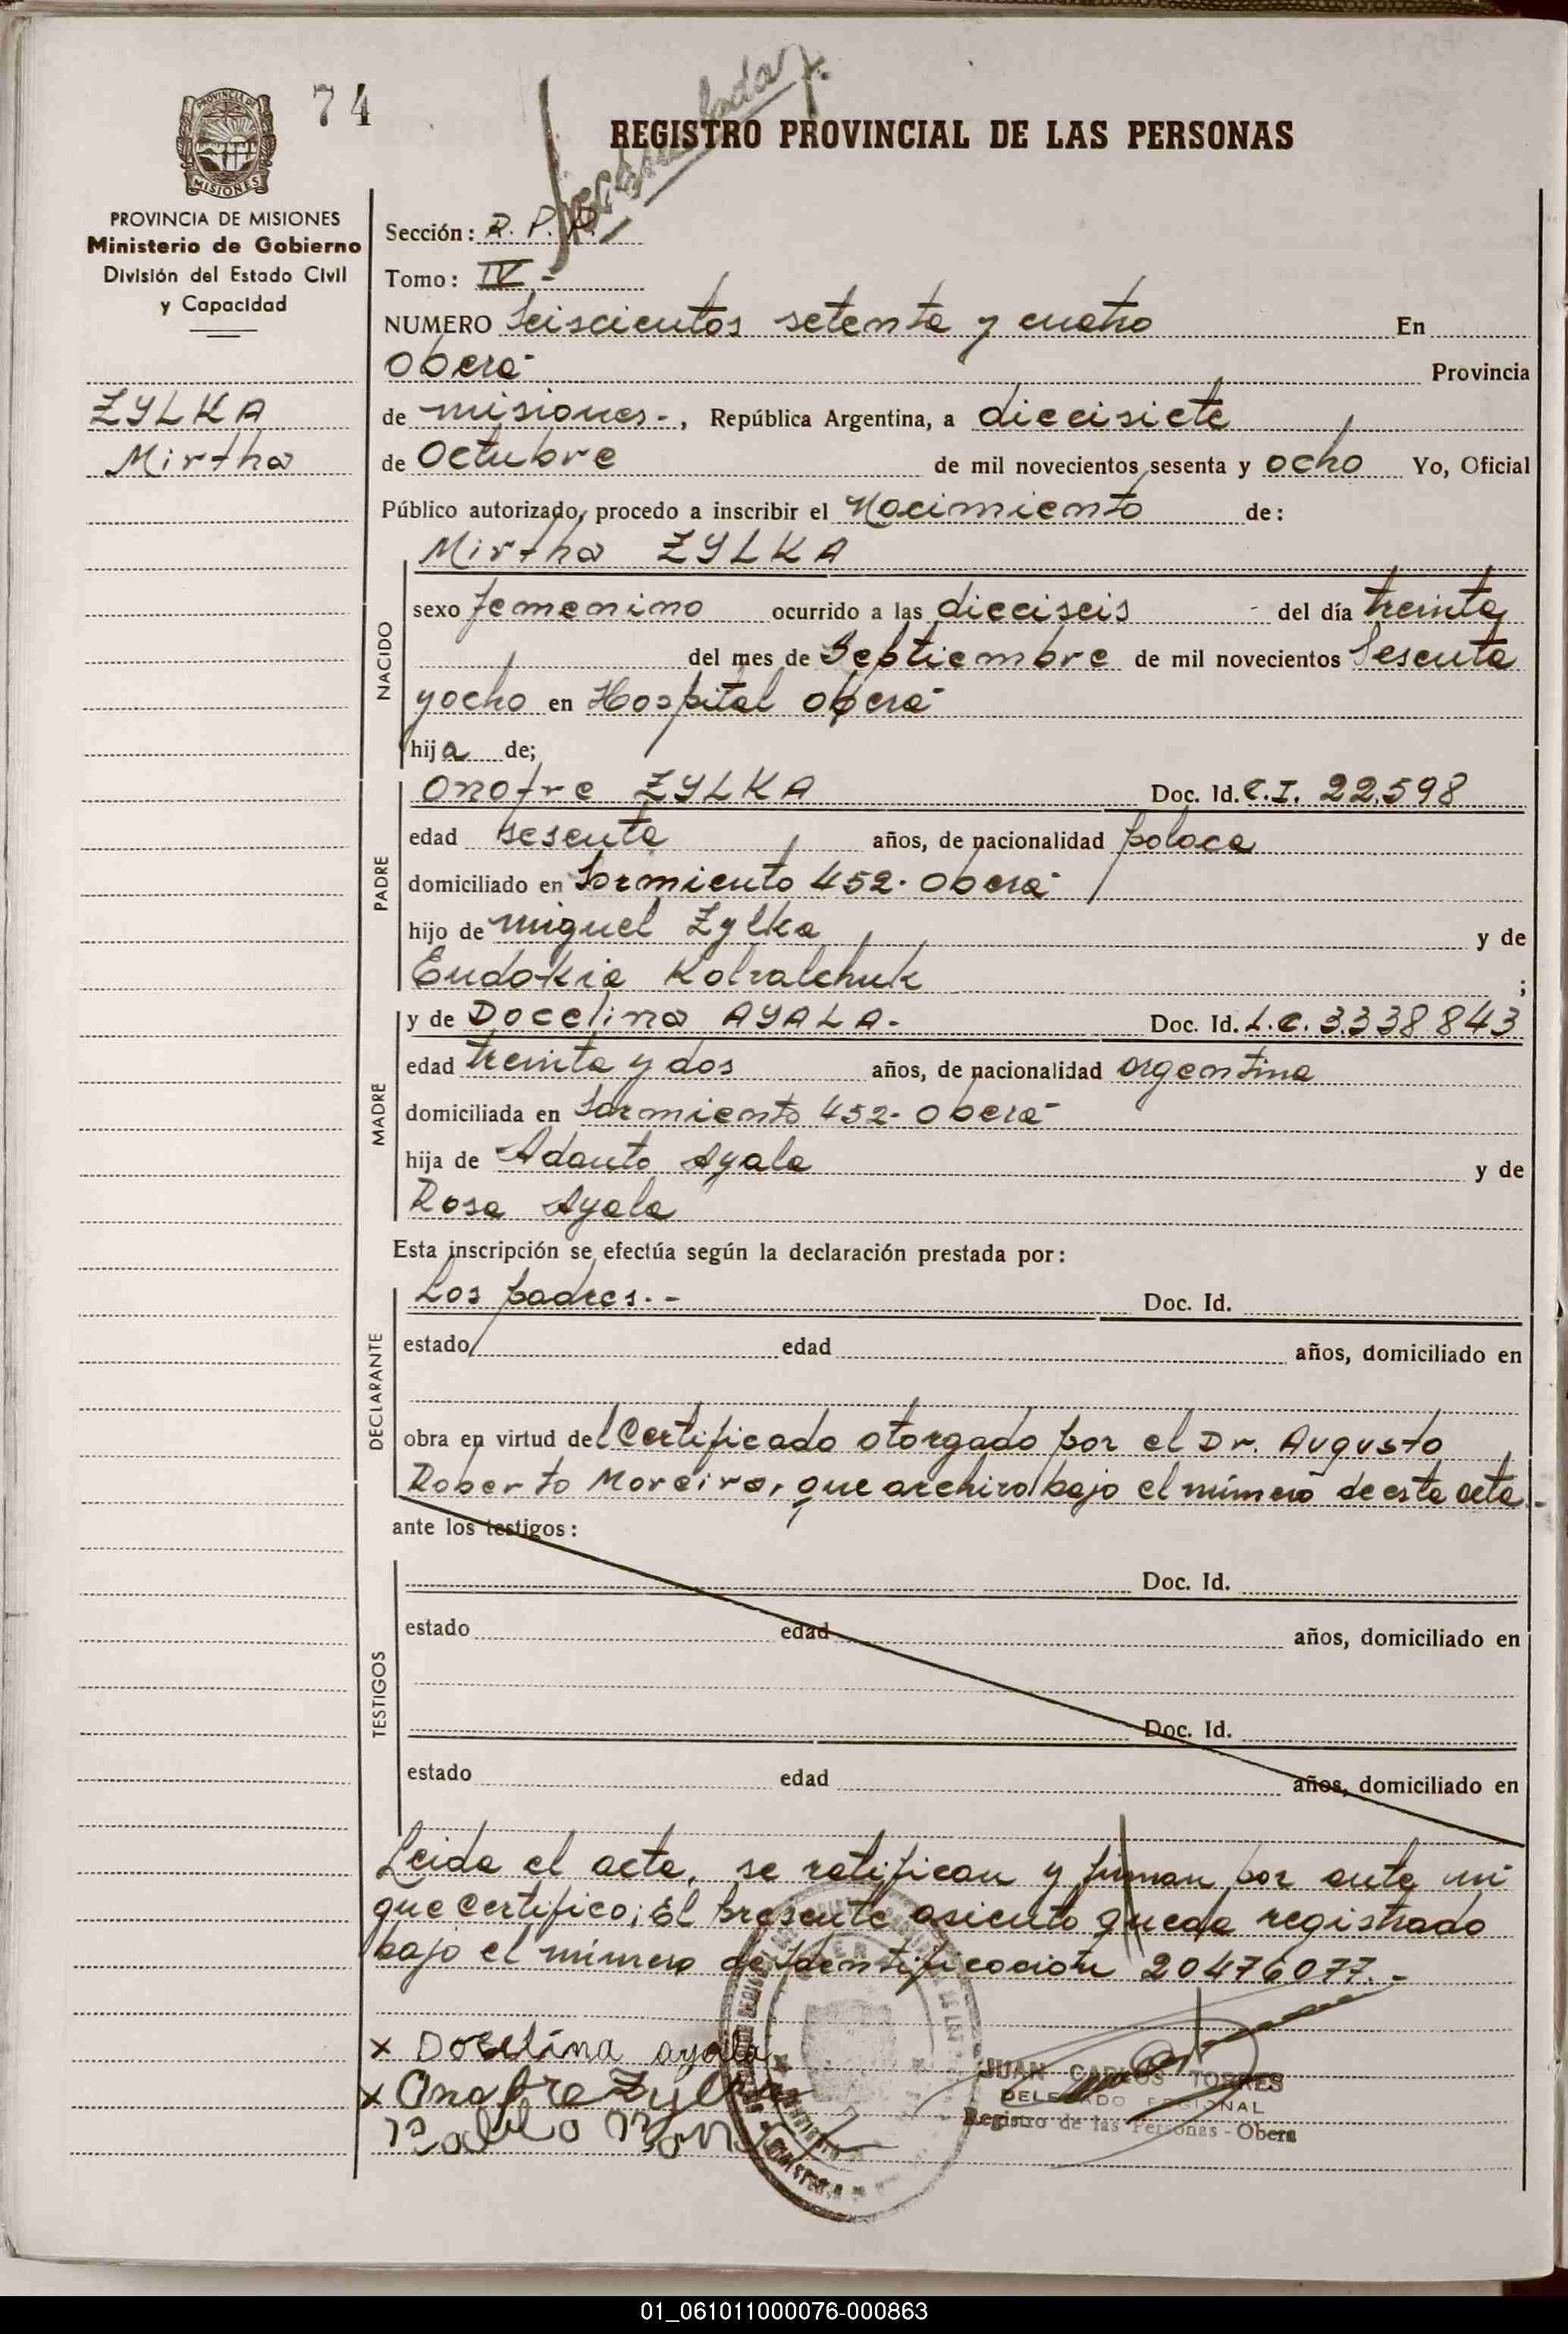 74
REGISTRO PROVINCIAL DE LAS PERSONAS
PROVINCIA DE MISIONES
MISIONES
PROVINCIA DE MISIONES
Ministerio de Gobierno
División del Estado Civil
y Capacidad
ZYLKA
Mirtha
Sección: R. P. P.
Tomo: IV -
NUMERO Seiscientos setenta y cuatro En
Oberá Provincia
de misiones-, República Argentina, a diecisiete
de Octubre de mil novecientos sesenta y ocho Yo, Oficial
Público autorizado, procedo a inscribir el Nacimiento de:
NACIDO
Mirtha ZYLKA
sexo femenino ocurrido a las dieciseis - del día treinta
del mes de Septiembre de mil novecientos Sesenta
y ocho en Hospital oberá
hija de;
PADRE
Onofre ZYLKA Doc. Id. C.I. 22.598
edad sesenta años, de nacionalidad polaca
domiciliado en Sarmiento 452- Oberá
hijo de miguel Zylka y de
Eudokia Kolvalchuk ;
MADRE
y de Docelina AYALA- Doc. Id. L.C. 3.338 843
edad treinta y dos años, de nacionalidad argentina
domiciliada en Sarmiento 452- Oberá
hija de Adauto Ayala y de
Rosa Ayala
Esta inscripción se efectúa según la declaración prestada por:
DECLARANTE
Los padres.- Doc. Id.
estado edad años, domiciliado en
obra en virtud del Certificado otorgado por el Dr. Augusto
Roberto Moreira, que archivo bajo el número de esta acta.-
ante los testigos:
TESTIGOS
Doc. Id.
estado edad años, domiciliado en
Doc. Id.
estado edad años, domiciliado en
Leida el acta, se ratifican y firman por ante mi
que certifico; El presente asiento queda registrado
bajo el número de Identificación 20476077.-
x Docelina ayala
x Onofre Zylka
JUAN CARLOS TORRES
DELEGADO REGIONAL
Registro de las Personas - Obera
01_061011000076-000863